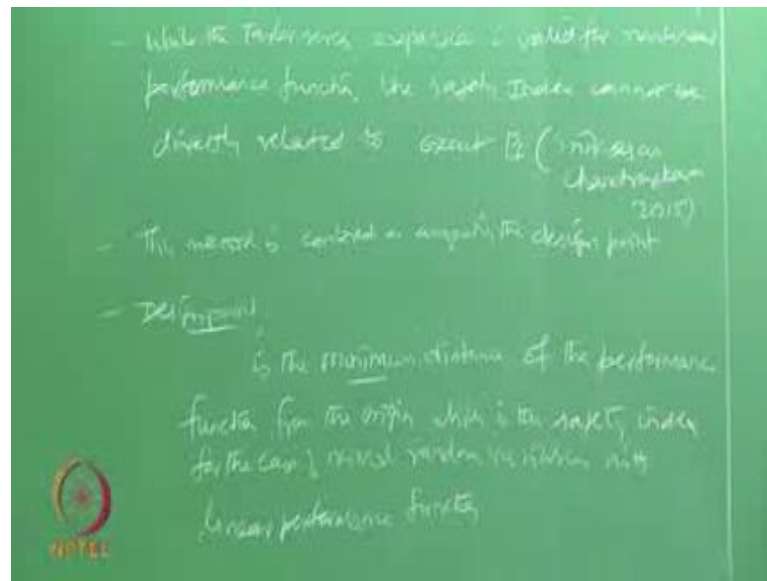 - While the Taylor series expansion is valid for nonlinear
performance function, the safety Index cannot be
directly related to exact Pf (Srinivasan
Chandrasekaran
2015)
- This method is centered on computing the design point
- Design point
is the minimum distance of the performance
function from the origin which is the safety index
for the case of normal random variables with
linear performance function
NPTEL